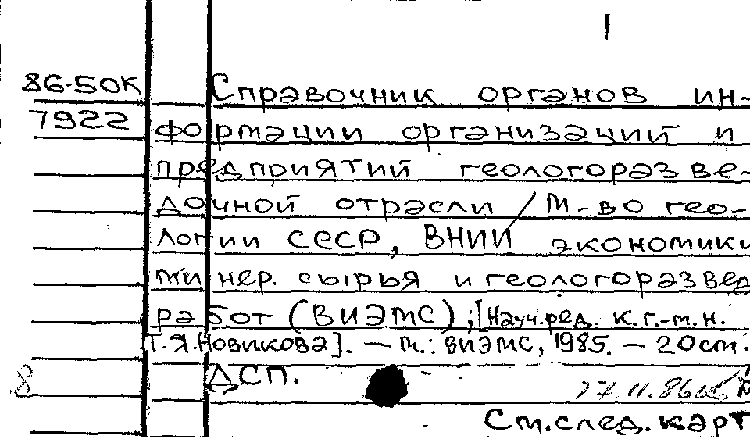 86-50К Справочник органов ин-
7922 формации организаций и
предприятий геологоразве-
дочной отрасли / М-во гео-
логии СССР, ВНИИ экономики
минер. сырья и геологоразвед.
работ (ВИЭМС); [Науч.ред. к.г.-м.н.
Т.Я.Новикова]. — М.: ВИЭМС, 1985. — 20см.
8 ДСП.
27.11.86
См.след.карт